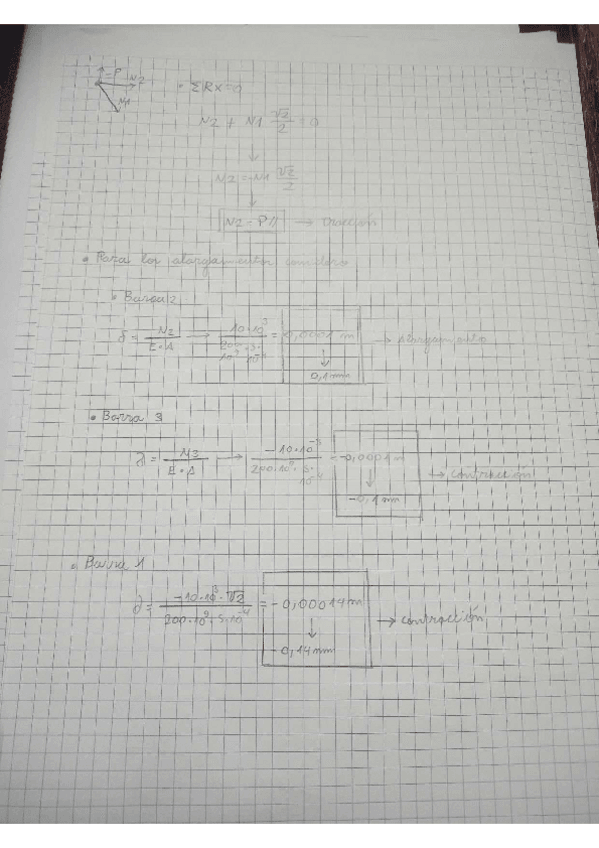 -P
N2
N1
• ΣRX=0
N2 + N1 √2/2 = 0
↓
N2 = -N1 √2/2
↓
N2 = P // → Tracción
• Para los alargamientos
• Barra 2
δ = N2/E·A → 10·10³/200·10⁹·5·10⁻⁴ = 0,0001 m → alargamiento
↓
0,1 mm
• Barra 3
δ = N3/E·A → -10·10⁻³/200·10⁹·5·10⁻⁴ = -0,0001 m → contracción
↓
-0,1 mm
• Barra 1
δ = -10·10³·√2/200·10⁹·5·10⁻⁴ = -0,00014 m → contracción
↓
-0,14 mm